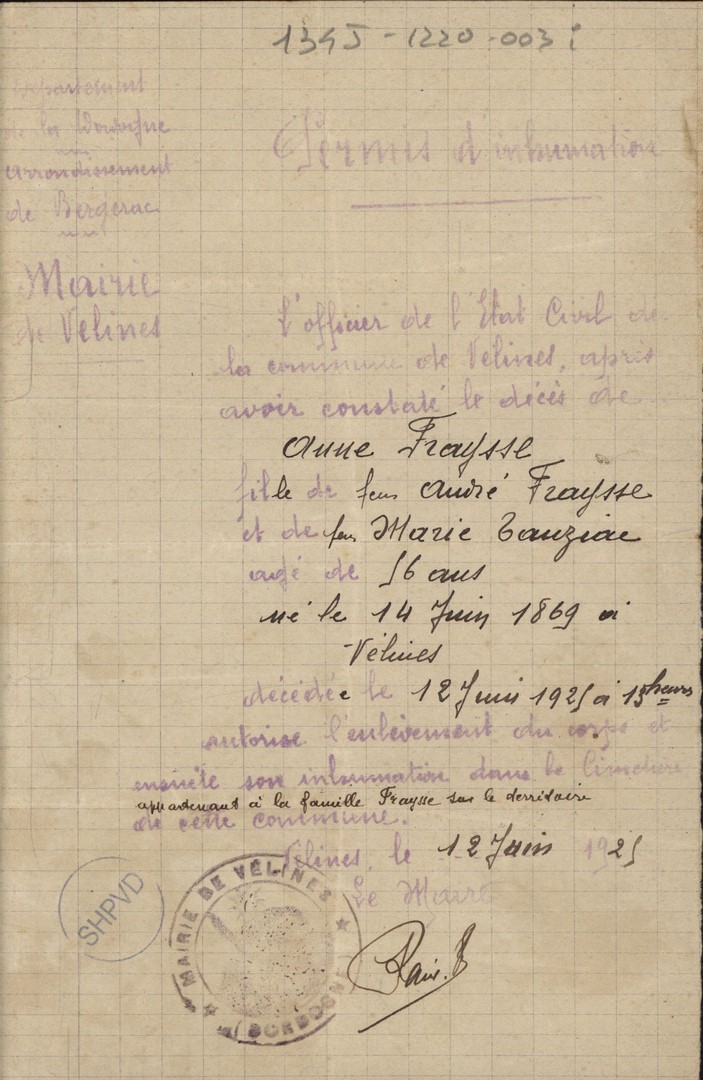 134J-1220-003i
Département
de la Dordogne
arrondissement
de Bergerac
Mairie
de Vélines
Permis d'inhumation
L'officier de l'Etat Civil de
la commune de Vélines, après
avoir constaté le décès de
Anne Fraysse
fille de feu André Fraysse
et de feu Marie Tauziac
agé de 56 ans
né le 14 Juin 1869 à
Vélines
décédée le 12 Juin 1925 à 15 heures
autorise l'enlèvement du corps et
ensuite son inhumation dans le Cimetière
appartenant à la famille Fraysse sur le derritoire
de cette commune.
Vélines, le 12 Juin 1925
Le Maire
MAIRIE DE VELINES
DORDOGNE
SHPVD